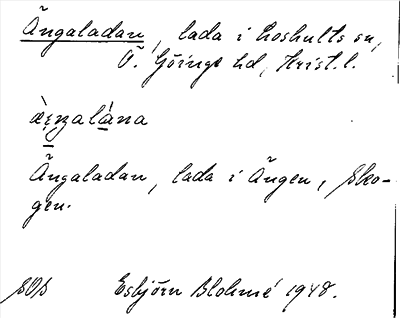 Ängaladan, lada i Loshults sn,
Ö. Göinge hd, Krist. l.
ä̀ŋalána
Ängaladan, lada i Ängen, sko-
gen.
SOS Esbjörn Blohmé 1948.